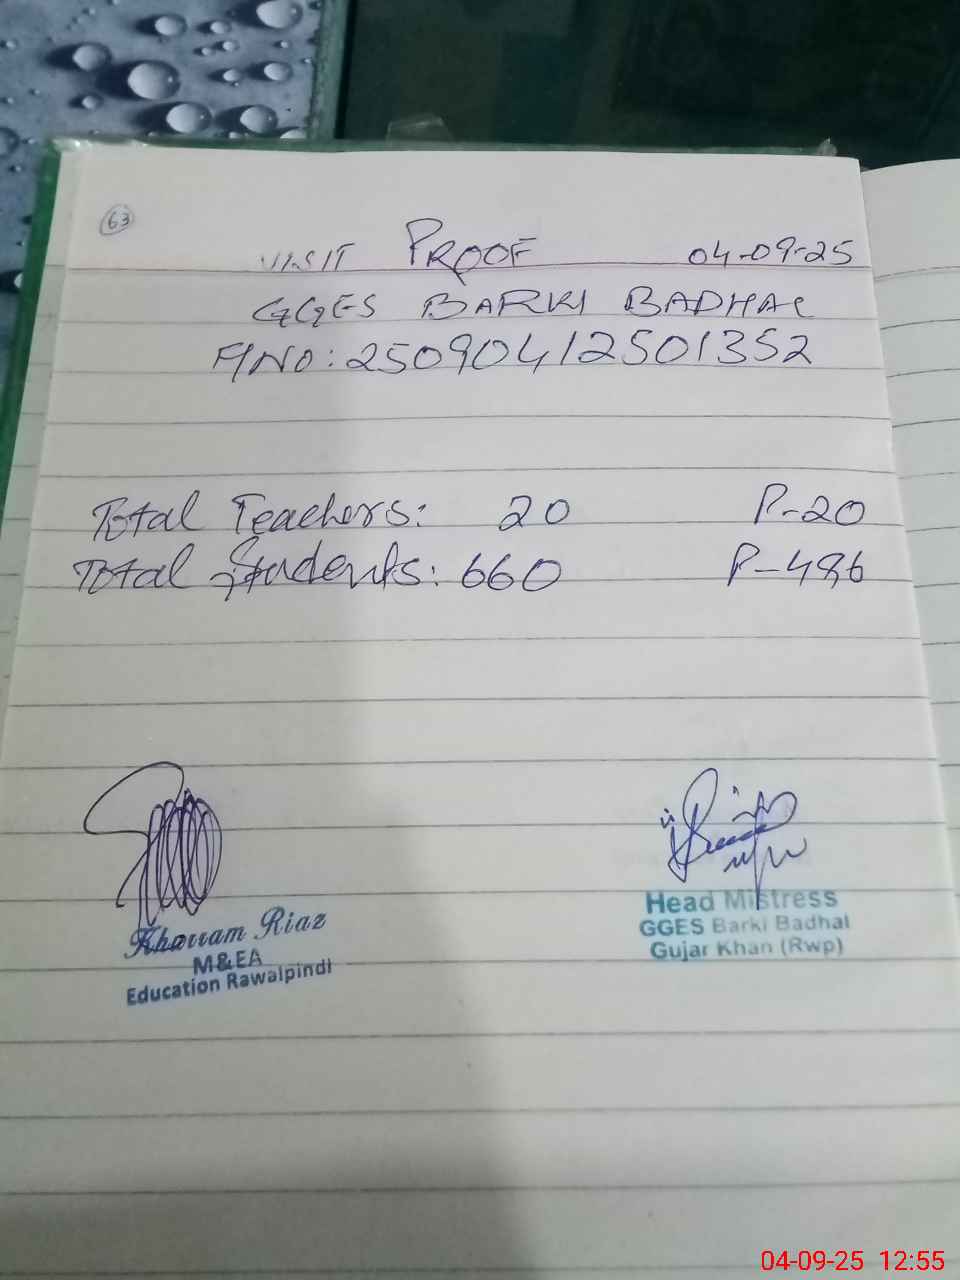 63
VISIT PROOF 04-09-25
GGES BARKI BADHAL
F/NO: 25090412501352
Total Teachers: 20 P-20
Total Students: 660 P-486
Khurram Riaz
M&EA
Education Rawalpindi
Head Mistress
GGES Barki Badhal
Gujar Khan (Rwp)
04-09-25 12:55